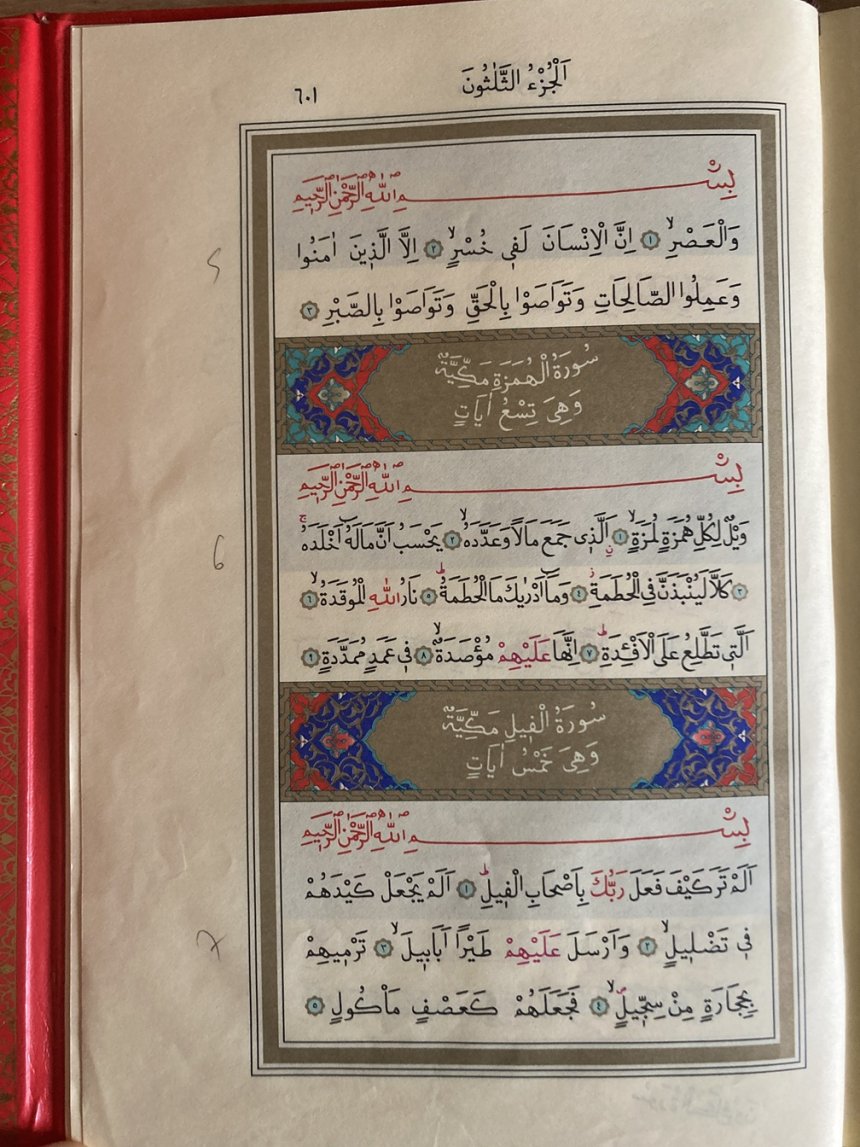 اَلْجُزْءُ الثَّلٰثُونَ
٦٠١
بِسْمِ اللّٰهِ الرَّحْمٰنِ الرَّحِيمِ
وَالْعَصْرِۙ ١ اِنَّ الْاِنْسَانَ لَفٖى خُسْرٍۙ ٢ اِلَّا الَّذٖينَ اٰمَنُوا
وَعَمِلُوا الصَّالِحَاتِ وَتَوَاصَوْا بِالْحَقِّ وَتَوَاصَوْا بِالصَّبْرِ ٣
سُورَةُ الْهُمَزَةِ مَكِّيَّةٌ
وَهِىَ تِسْعُ اٰيَاتٍ
بِسْمِ اللّٰهِ الرَّحْمٰنِ الرَّحِيمِ
وَيْلٌ لِكُلِّ هُمَزَةٍ لُمَزَةٍۙ ١ اَلَّذٖى جَمَعَ مَالًا وَعَدَّدَهُۙ ٢ يَحْسَبُ اَنَّ مَالَهُ اَخْلَدَهُۚ
٣ كَلَّا لَيُنْبَذَنَّ فِى الْحُطَمَةِ ٤ وَمَا اَدْرٰيكَ مَا الْحُطَمَةُۜ ٥ نَارُ اللّٰهِ الْمُوقَدَةُۙ ٦
اَلَّتٖى تَطَّلِعُ عَلَى الْاَفْـِٔدَةِۜ ٧ اِنَّهَا عَلَيْهِمْ مُؤْصَدَةٌۙ ٨ فٖى عَمَدٍ مُمَدَّدَةٍ ٩
سُورَةُ الْفٖيلِ مَكِّيَّةٌ
وَهِىَ خَمْسُ اٰيَاتٍ
بِسْمِ اللّٰهِ الرَّحْمٰنِ الرَّحِيمِ
اَلَمْ تَرَ كَيْفَ فَعَلَ رَبُّكَ بِاَصْحَابِ الْفٖيلِۜ ١ اَلَمْ يَجْعَلْ كَيْدَهُمْ
فٖى تَضْلٖيلٍۙ ٢ وَاَرْسَلَ عَلَيْهِمْ طَيْرًا اَبَابٖيلَۙ ٣ تَرْمٖيهِمْ
بِحِجَارَةٍ مِنْ سِجّٖيلٍۙ ٤ فَجَعَلَهُمْ كَعَصْفٍ مَاْكُولٍ ٥
5
6
7